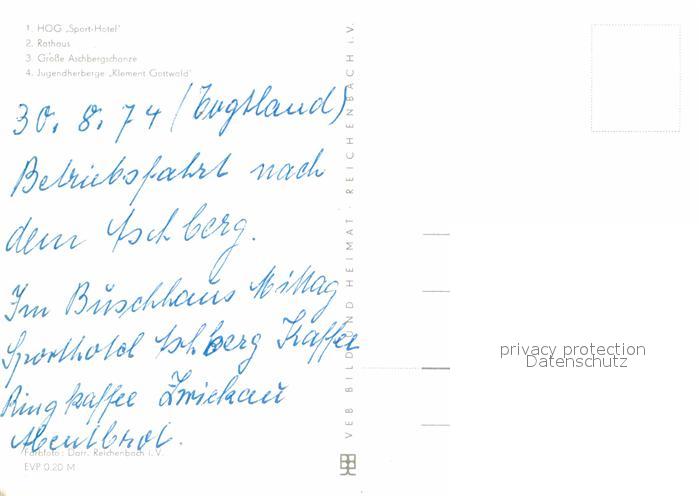 1. HOG „Sport-Hotel"
2. Rathaus
3 Große Aschbergschanze
4. Jugendherberge „Klement Gottwald"
30. 8. 74 (Vogtland)
Betriebsfahrt nach
dem Aschberg.
Im Buschhaus Mittag
Sporthotel Aschberg Kaffee
Ringkaffee Zwickau
Abentbrot.
Farbfoto: Darr, Reichenbach i. V.
EVP 0.20 M
VEB BILD UND HEIMAT · REICHENBACH i. V.
privacy protection
Datenschutz